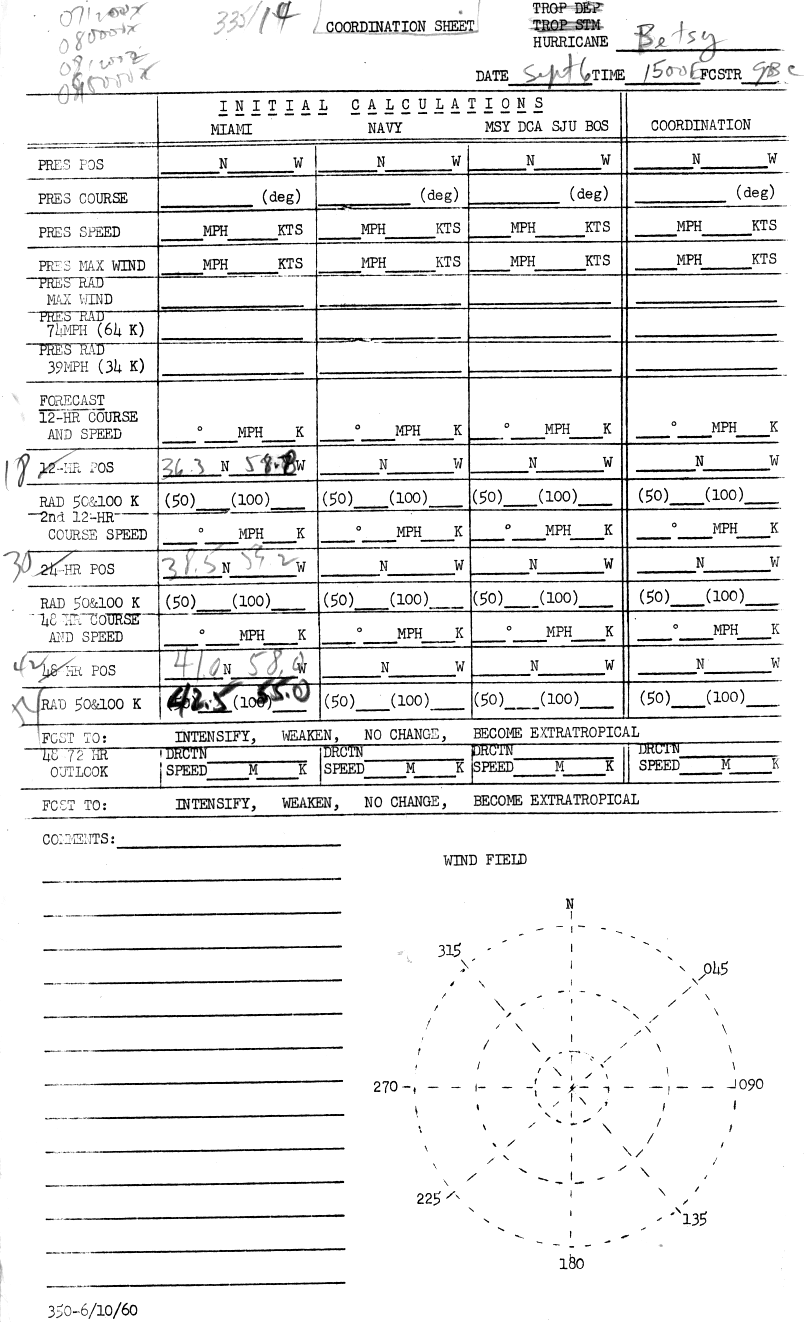 071200Z
080000Z
081200Z
090000Z
335/14
COORDINATION SHEET
TROP DEP
TROP STM
HURRICANE Betsy
DATE Sept 6 TIME 1500E FCSTR
INITIAL CALCULATIONS
MIAMI NAVY MSY DCA SJU BOS COORDINATION
PRES POS N W N W N W N W
PRES COURSE (deg) (deg) (deg) (deg)
PRES SPEED MPH KTS MPH KTS MPH KTS MPH KTS
PRES MAX WIND MPH KTS MPH KTS MPH KTS MPH KTS
PRES RAD
MAX WIND
PRES RAD
74MPH (64 K)
PRES RAD
39MPH (34 K)
FORECAST
12-HR COURSE
AND SPEED ° MPH K ° MPH K ° MPH K ° MPH K
18 12-HR POS 36.3 N 58.8 W N W N W N W
RAD 50&100 K (50) (100) (50) (100) (50) (100) (50) (100)
2nd 12-HR
COURSE SPEED ° MPH K ° MPH K ° MPH K ° MPH K
30 24-HR POS 38.5 N 59.2 W N W N W N W
RAD 50&100 K (50) (100) (50) (100) (50) (100) (50) (100)
48 HR COURSE
AND SPEED ° MPH K ° MPH K ° MPH K ° MPH K
42 48 HR POS 41.0 N 58.0 W N W N W N W
54 RAD 50&100 K 42.5 (100) 55.0 (50) (100) (50) (100) (50) (100)
FCST TO: INTENSIFY, WEAKEN, NO CHANGE, BECOME EXTRATROPICAL
48 72 HR DRCTN DRCTN DRCTN DRCTN
OUTLOOK SPEED M K SPEED M K SPEED M K SPEED M K
FCST TO: INTENSIFY, WEAKEN, NO CHANGE, BECOME EXTRATROPICAL
COMMENTS:
WIND FIELD
N
315
045
270
090
225
135
180
350-6/10/60